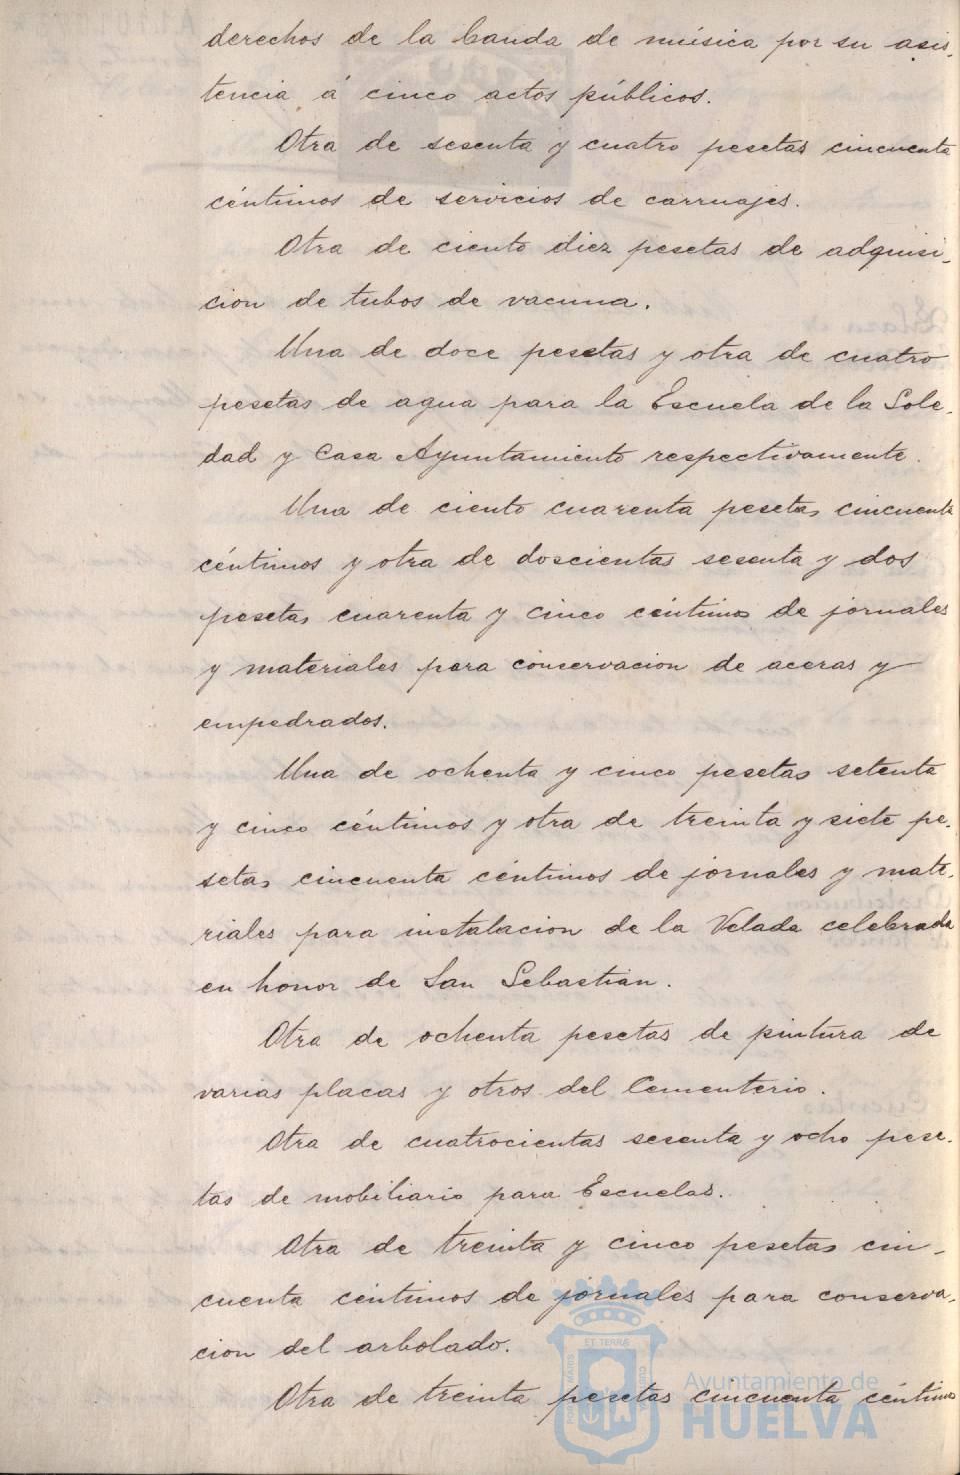 derechos de la banda de música por su asis-
tencia á cinco actos públicos.
Otra de sesenta y cuatro pesetas cincuenta
céntimos de servicios de carruajes.
Otra de ciento diez pesetas de adquisi-
cion de tubos de vacuna.
Una de doce pesetas y otra de cuatro
pesetas de agua para la Escuela de la Sole-
dad y Casa Ayuntamiento respectivamente.
Una de ciento cuarenta pesetas cincuenta
céntimos y otra de doscientas sesenta y dos
pesetas cuarenta y cinco céntimos de jornales
y materiales para conservacion de aceras y
empedrados.
Una de ochenta y cinco pesetas setenta
y cinco céntimos y otra de treinta y siete pe-
setas cincuenta céntimos de jornales y mate-
riales para instalacion de la Velada celebrada
en honor de San Sebastian.
Otra de ochenta pesetas de pintura de
varias placas y otros del Cementerio.
Otra de cuatrocientas sesenta y ocho pese-
tas de mobiliario para Escuelas.
Otra de treinta y cinco pesetas cin-
cuenta céntimos de jornales para conserva-
cion del arbolado.
Otra de treinta pesetas cincuenta céntimos
Ayuntamiento de
HUELVA